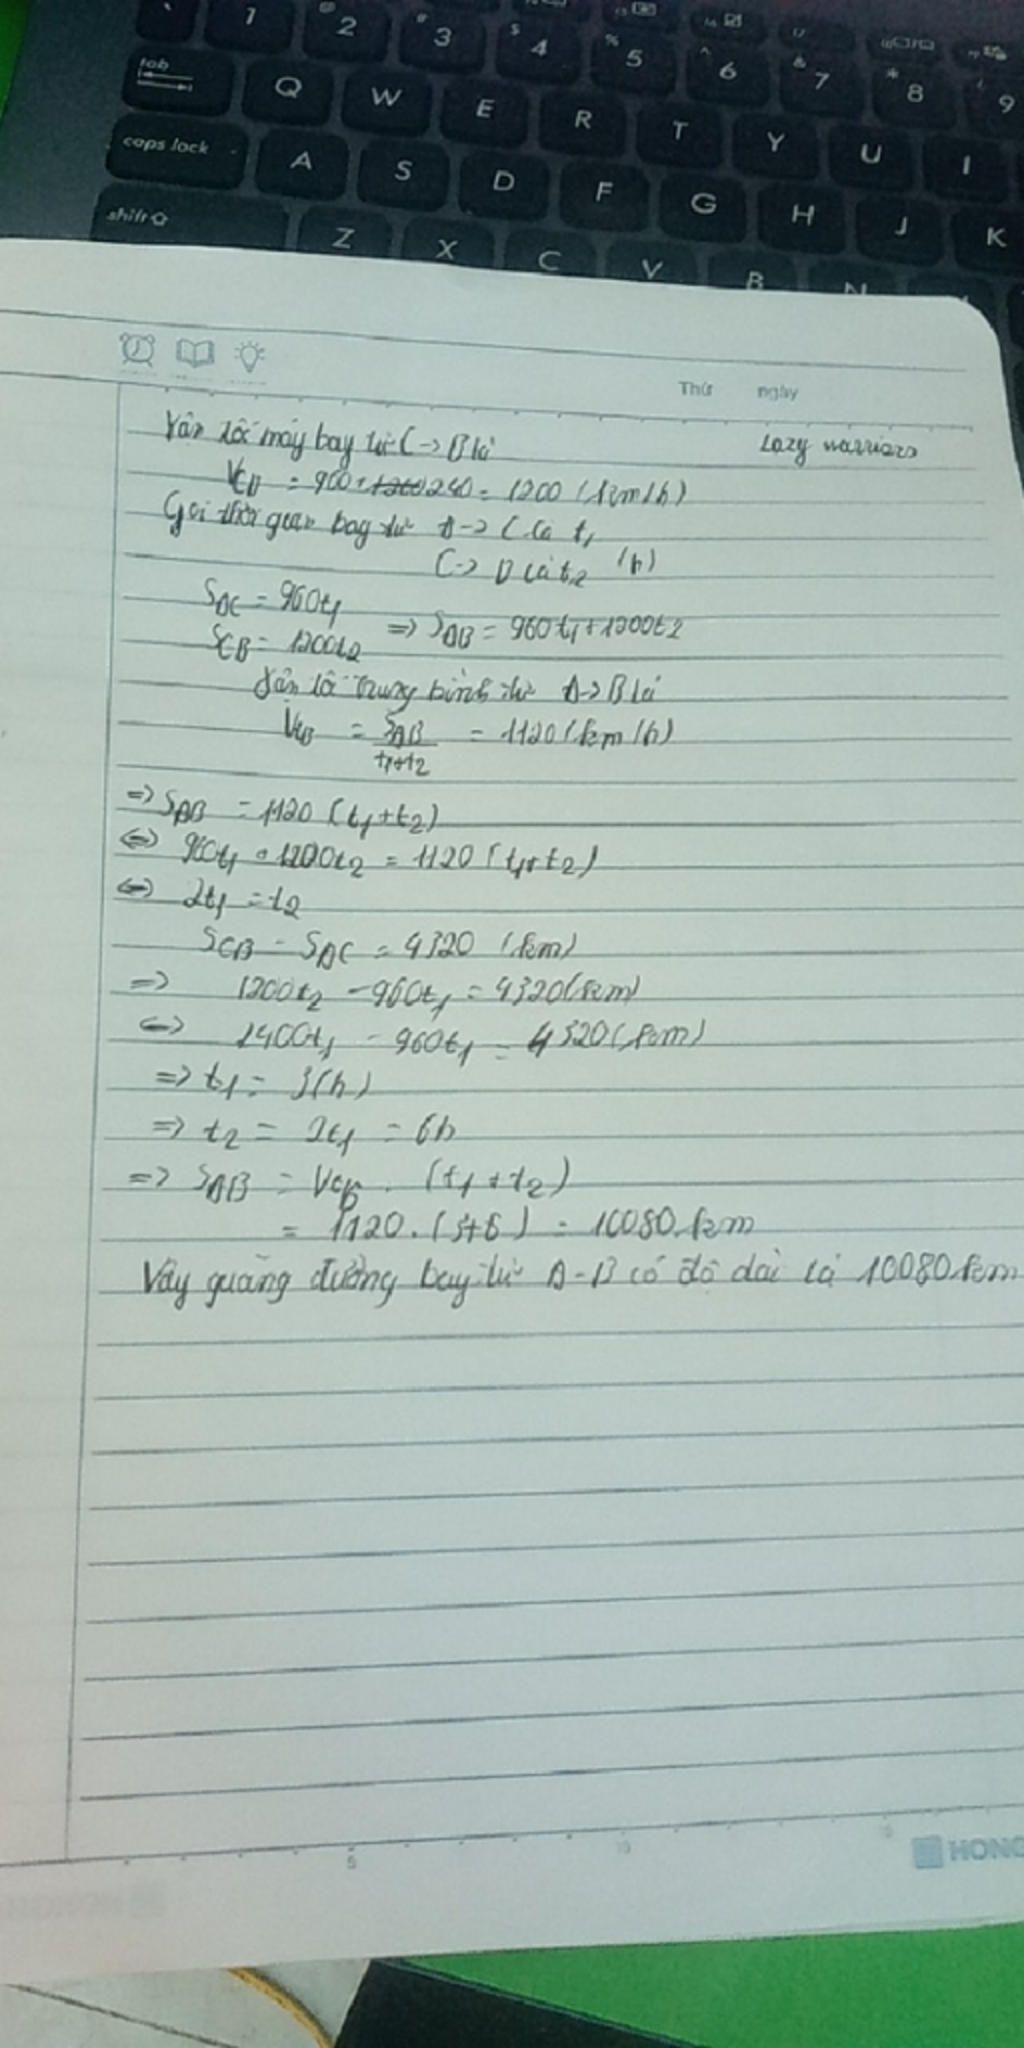 1 2 3 4 5 6 7 8 9
tab Q W E R T Y U I
caps lock A S D F G H J K
shift Z X C V B N
Thứ ngày
Lazy warriors
Vận tốc máy bay từ C -> B là
VCB = 960 + 240 = 1200 (km/h)
Gọi thời gian bay từ A -> C là t1
C -> B là t2 (h)
SAC = 960t1
SCB = 1200t2 => SAB = 960t1 + 1200t2
Vận tốc trung bình từ A -> B là
Vtb = SAB / t1+t2 = 1120 (km/h)
=> SAB = 1120 (t1+t2)
<=> 960t1 + 1200t2 = 1120 (t1+t2)
<=> 2t1 = t2
SCB - SAC = 4320 (km)
=> 1200t2 - 960t1 = 4320 (km)
<=> 2400t1 - 960t1 = 4320 (km)
=> t1 = 3(h)
=> t2 = 2t1 = 6h
=> SAB = Vtb . (t1 + t2)
= 1120 . (3+6) = 10080 km
Vậy quãng đường bay từ A-B có độ dài là 10080 km
5 10 15
HONG